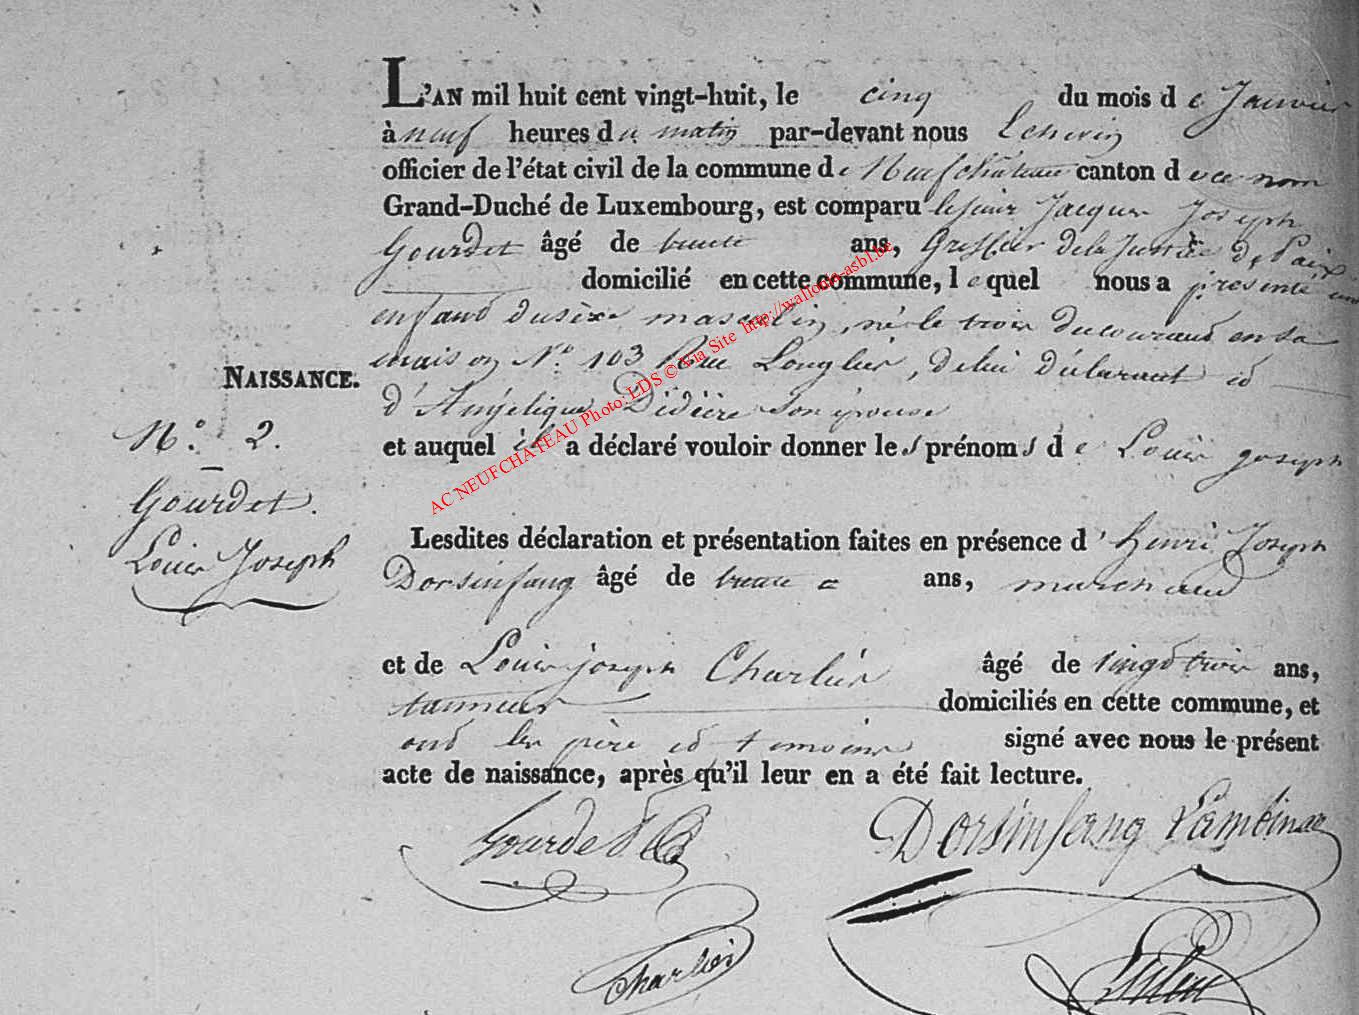 L'AN mil huit cent vingt-huit, le cinq du mois de Janvier
à neuf heures du matin par-devant nous Echevin
officier de l'état civil de la commune de Neufchâteau canton de ce nom
Grand-Duché de Luxembourg, est comparu le sieur Jacques Joseph
Gourdet âgé de trente ans, Greffier de la Justice de Paix
domicilié en cette commune, lequel nous a présenté un
enfant du sexe masculin, né le trois du courant en sa
maison N.º 103 Rue Longlier, de lui déclarant et
d'Angélique Didière son épouse
et auquel il a déclaré vouloir donner les prénoms de Louis Joseph
NAISSANCE.
N.º 2.
Gourdet.
Louis Joseph
Lesdites déclaration et présentation faites en présence d'Henri Joseph
Dorsinfang âgé de trente ans, marchand
et de Louis joseph Charlier âgé de vingt trois ans,
tanneur domiciliés en cette commune, et
ont les père et témoins signé avec nous le présent
acte de naissance, après qu'il leur en a été fait lecture.
Gourdet
Dorsinfang Lambinet
Charlier
AC NEUFCHATEAU Photo: LDS © Via Site http://wallonia-asbl.be